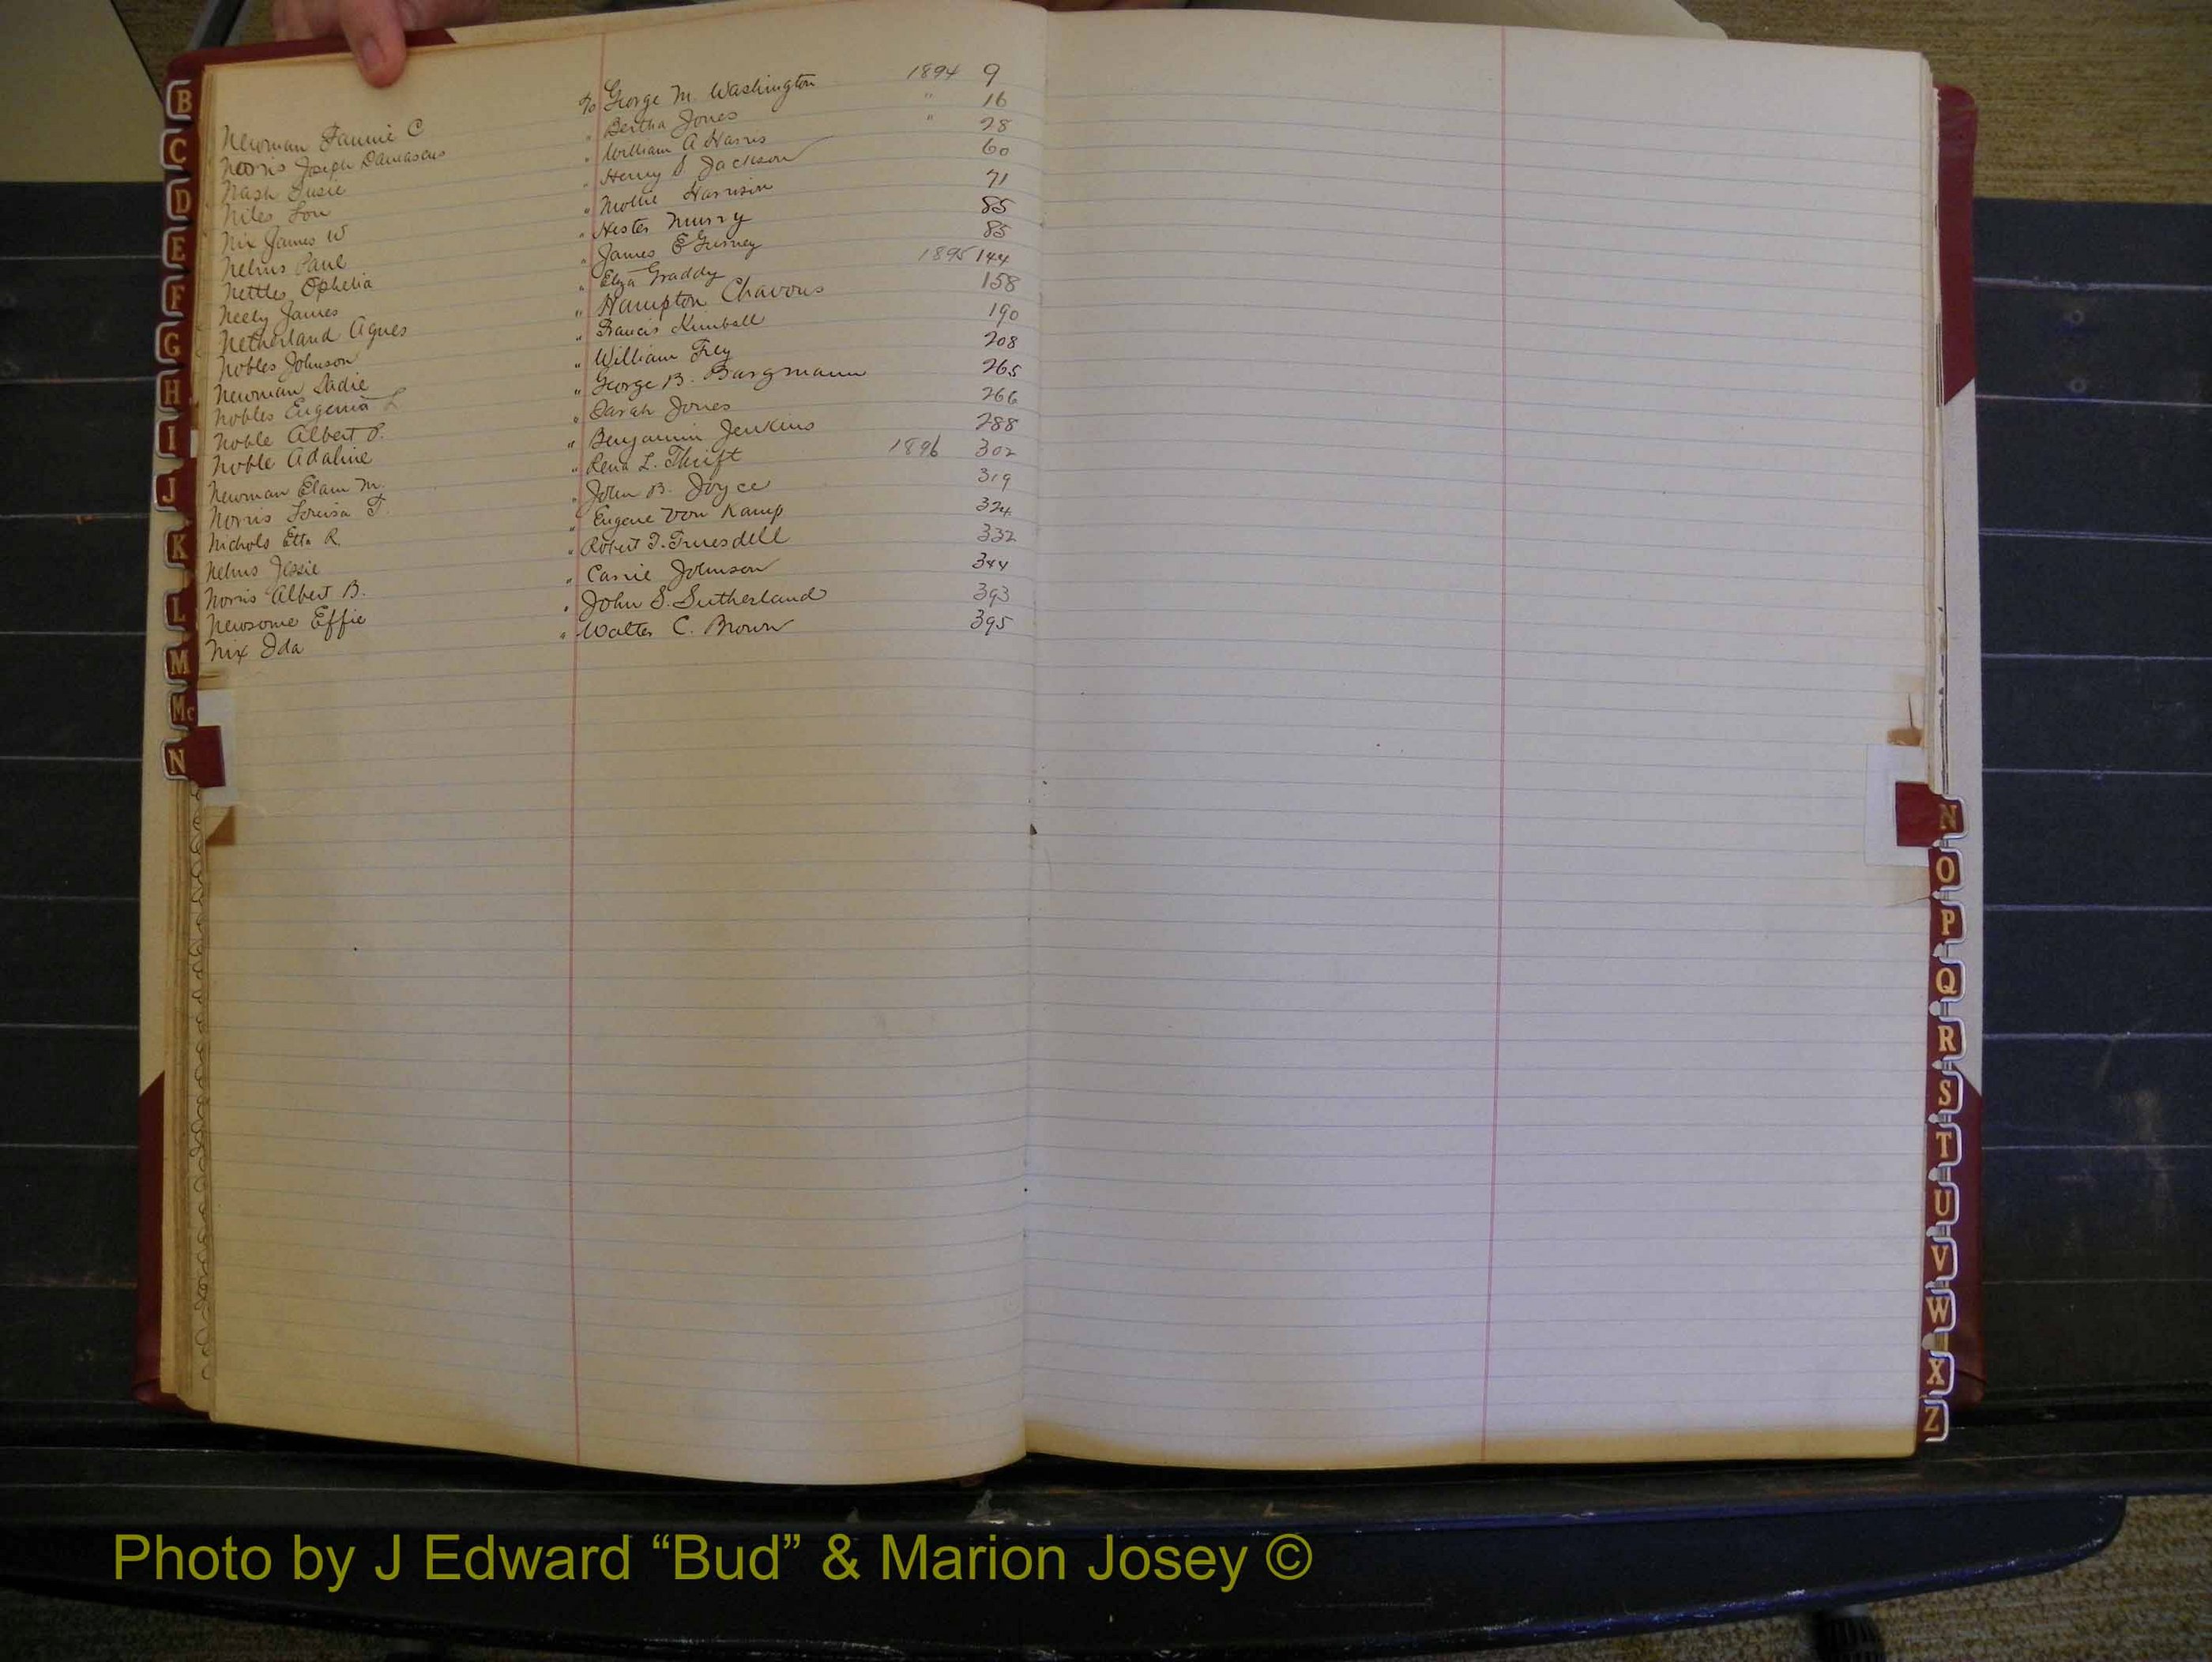 Newman Fannie C to George M. Washington 1894 9
Norris Joseph Damascus " Bertha Jones " 16
Nash Susie " William A Harris " 28
Niles Lou " Henry S Jackson 60
Nix James W " Mollie Harrison 71
Nelms Paul " Hester Murry 85
Nettles Ophelia " James E Gurney 85
Neely James " Eliza Graddy 1895 144
Netherland Agnes " Hampton Chavous 158
Nobles Johnson " Francis Kimball 190
Newman Sadie " William 208
Nobles Eugenia L " George B. Bargmann 265
Noble Albert S. " Sarah Jones 266
Noble Adaline " Benjamin Jenkins 288
Newman Elam M. " Rena L. Thrift 1896 302
Norris Louisa T. " John B. Joyce 319
Nichols Etta R " Eugene Von Kamp 324
Nelms Jessie " Robert T. Truesdell 332
Norris Albert B. " Carrie Johnson 344
Newsome Effie " John S. Sutherland 393
Nix Ida " Walter C. Brown 395
B
C
D
E
F
G
H
I
J
K
L
M
Mc
N
N
O
P
Q
R
S
T
U
V
W
X
Z
Photo by J Edward “Bud” & Marion Josey ©